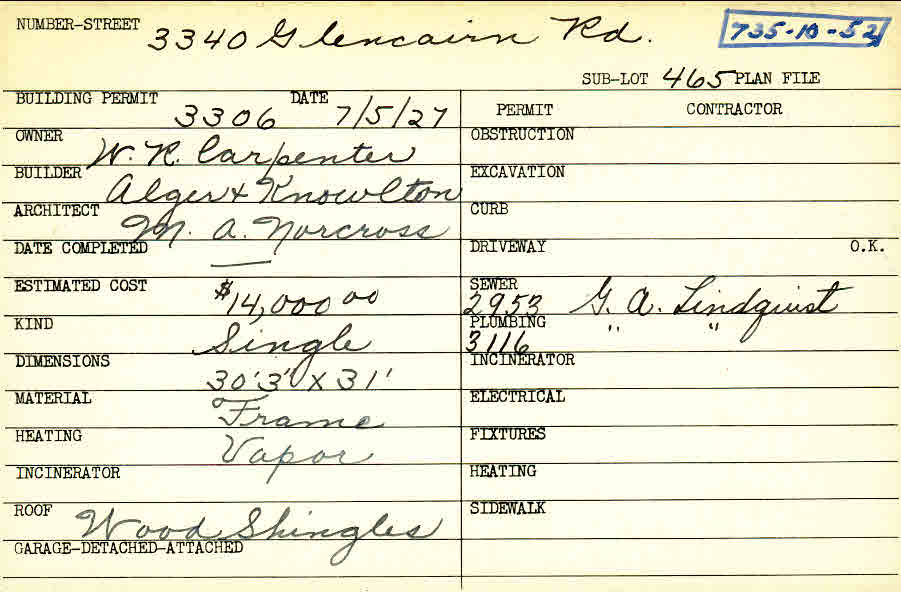 NUMBER-STREET 3340 Glencairn Rd. 735-10-52
SUB-LOT 465 PLAN FILE
BUILDING PERMIT 3306 DATE 7/5/27
PERMIT CONTRACTOR
OWNER W. R. Carpenter
OBSTRUCTION
BUILDER Alger & Knowlton
EXCAVATION
ARCHITECT M. A. Norcross
CURB
DATE COMPLETED —
DRIVEWAY O.K.
ESTIMATED COST $14,000 00
SEWER 2953 G. A. Lindquist
KIND Single
PLUMBING 3116 " "
DIMENSIONS 30'3" X 31'
INCINERATOR
MATERIAL Frame
ELECTRICAL
HEATING Vapor
FIXTURES
INCINERATOR
HEATING
ROOF Wood Shingles
SIDEWALK
GARAGE-DETACHED-ATTACHED